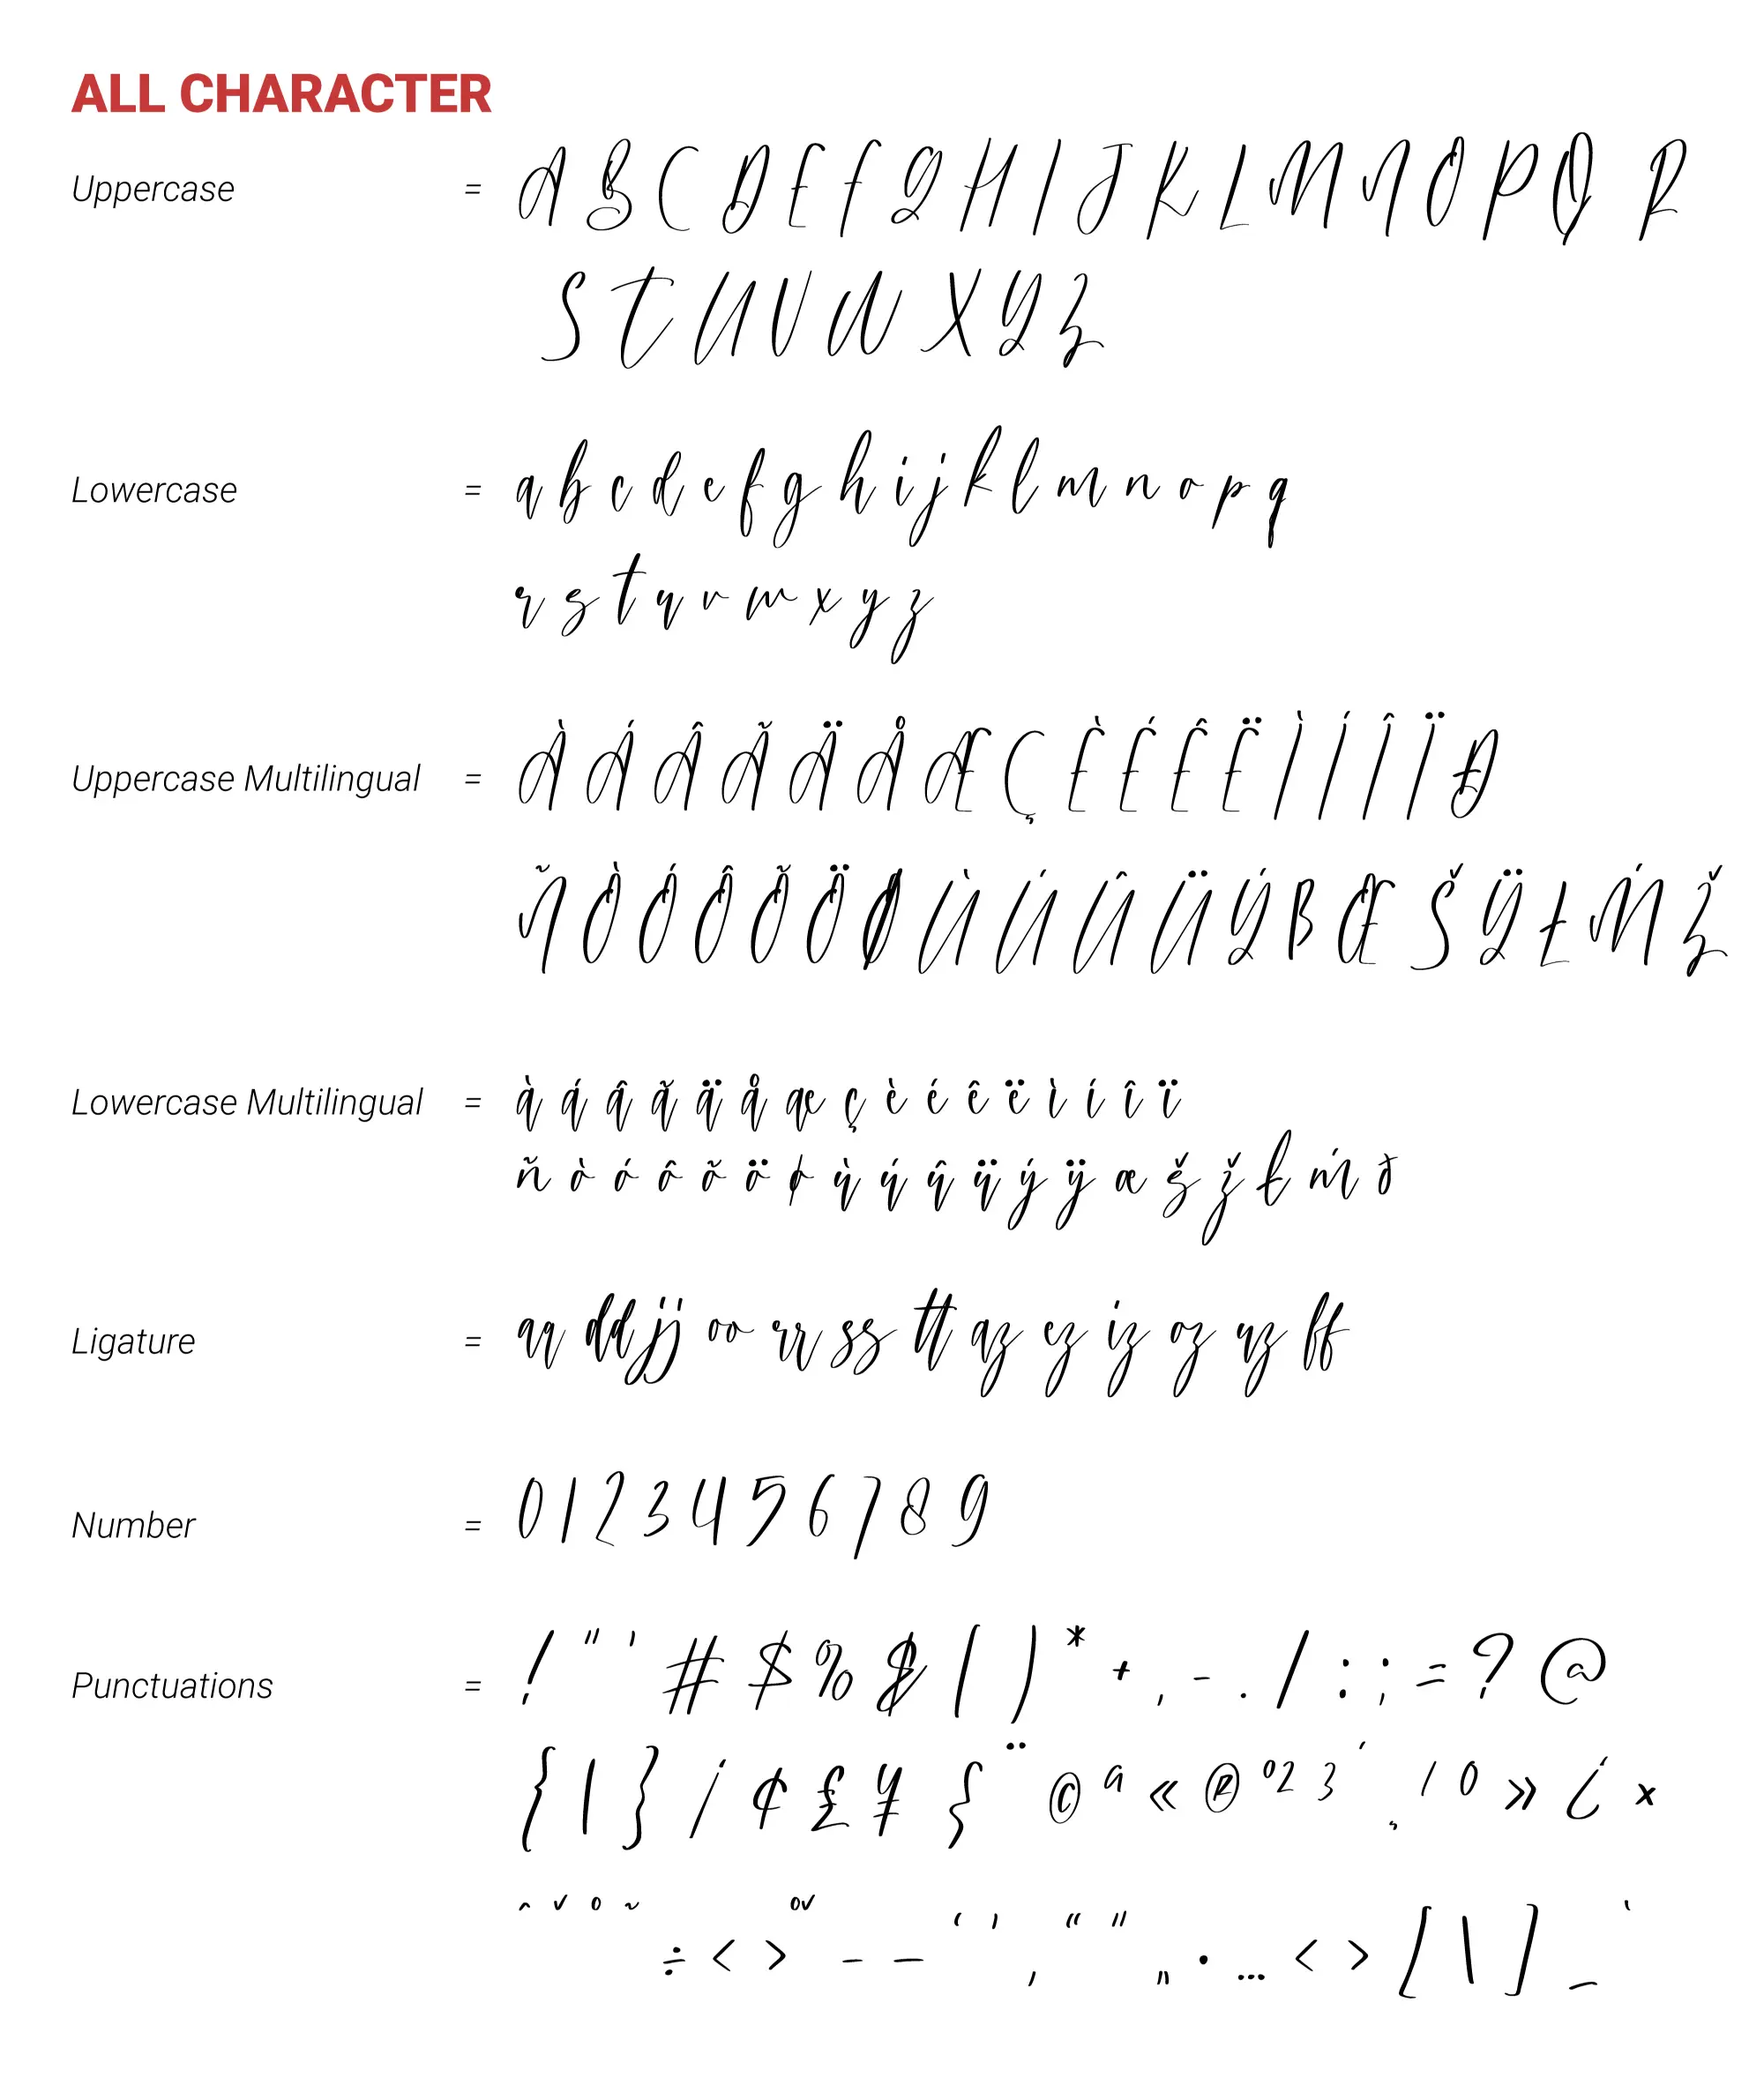 ALL CHARACTER
Uppercase = A B C D E F G H I J K L M N O P Q R
S T U V W X Y Z
Lowercase = a b c d e f g h i j k l m n o p q
r s t u v w x y z
Uppercase Multilingual = À Á Â Ã Ä Å Æ Ç È É Ê Ë Ì Í Î Ï Ð
Ñ Ò Ó Ô Õ Ö Ø Ù Ú Û Ü Ý ß Œ Š Ÿ Ł Ḿ Ž
Lowercase Multilingual = à á â ã ä å æ ç è é ê ë ì í î ï
ñ ò ó ô õ ö ø ù ú û ü ý ÿ œ š ž ł ḿ ð
Ligature = aa dd jj oo rr ss tt az ez iz oz uz ff
Number = 0 1 2 3 4 5 6 7 8 9
Punctuations = ! " ' # $ % & ( ) * + , - . / : ; = ? @
{ | } ¡ ¢ £ ¥ { ¨ © ª « ® º 2 3 ´ ¸ 1 0 » ¿ ×
ˆ ˇ ° ˜ ÷ < > – — ‘ ’ ‚ “ ” „ • … < > [ \ ] _ `